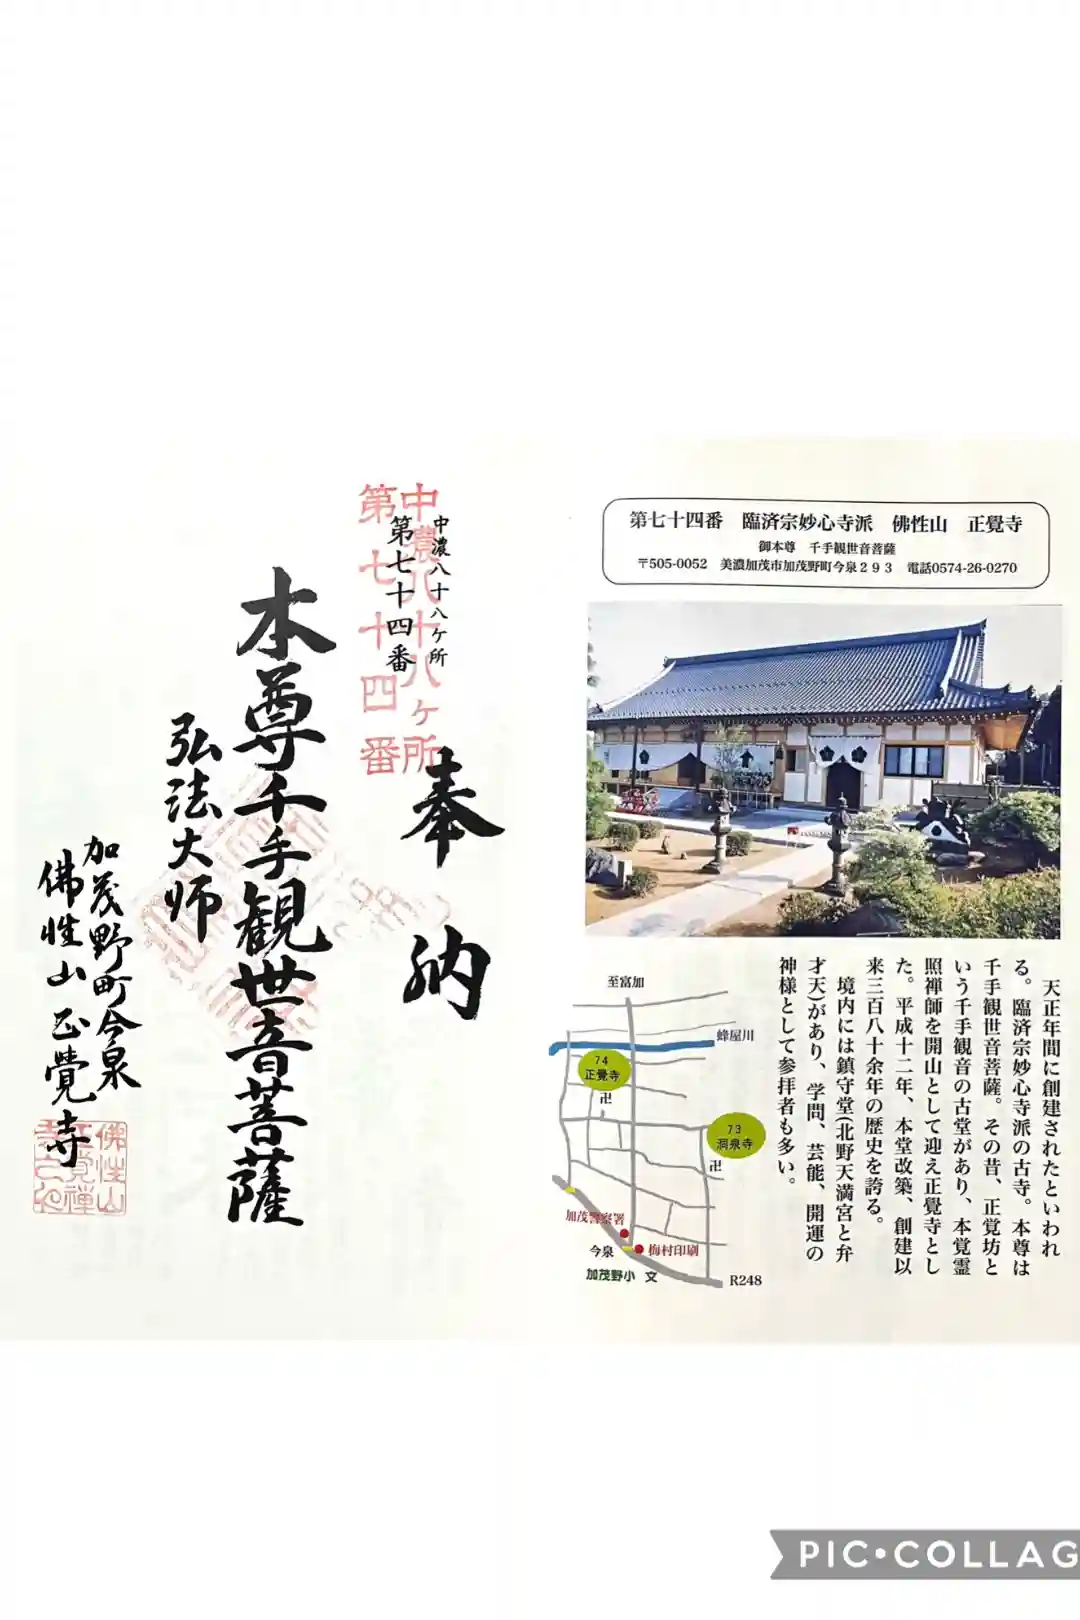 第七十四番 臨済宗妙心寺派 佛性山 正覺寺
御本尊 千手観世音菩薩
〒505-0052 美濃加茂市加茂野町今泉293 電話0574-26-0270
天正年間に創建されたといわれ
る。臨済宗妙心寺派の古寺。本尊は
千手観世音菩薩。その昔、正覚坊と
いう千手観音の古堂があり、本覚霊
照禅師を開山として迎え正覺寺とし
た。平成十二年、本堂改築、創建以
来三百八十余年の歴史を誇る。
境内には鎮守堂(北野天満宮と弁
才天)があり、学問、芸能、開運の
神様として参拝者も多い。
至富加
蜂屋川
74
正覺寺
卍
73
洞泉寺
卍
加茂警察署
今泉
梅村印刷
加茂野小 文
R248
奉納
中濃八十八ヶ所
第七十四番
中濃八十八ヶ所
第七十四番
本尊千手観世音菩薩
弘法大师
加茂野町今泉
佛性山正覺寺
佛性山
正覺禅
PIC•COLLAG